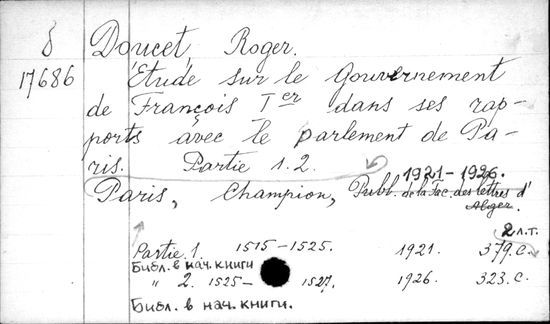 δ Doucet, Roger.
17686 Étude sur le gouvernement
de François Ier dans ses rap-
ports avec le parlement de Pa-
ris. Partie 1. 2.
Paris, Champion, 1921-1926.
Publ. de la Fac. des lettres d'
Alger.
2 л.т.
Partie 1. 1515-1525. 1921. 379 с.
Библ. в нач. книги
" 2. 1525- 1527. 1926. 323. с.
Библ. в нач. книги.